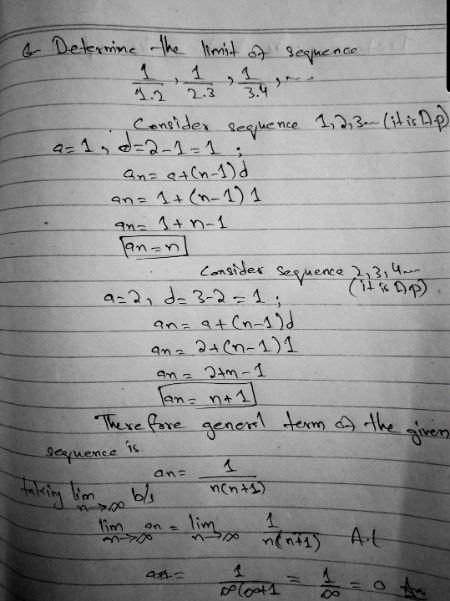 Q- Determine the limit of sequence
1/1.2 , 1/2.3 , 1/3.4 , ...
Consider sequence 1,2,3... (it is A.p)
a=1, d=2-1=1 ;
an= a+(n-1)d
an= 1+(n-1)1
an= 1+n-1
an=n
Consider sequence 2,3,4...
(it is A.p)
a=2, d=3-2=1 ;
an= a+(n-1)d
an= 2+(n-1)1
an= 2+n-1
an= n+1
Therefore general term of the given
sequence is
an= 1/n(n+1)
taking lim n→∞ b/s
lim n→∞ an = lim n→∞ 1/n(n+1)
= 1/∞(∞+1 = 1/∞ = 0